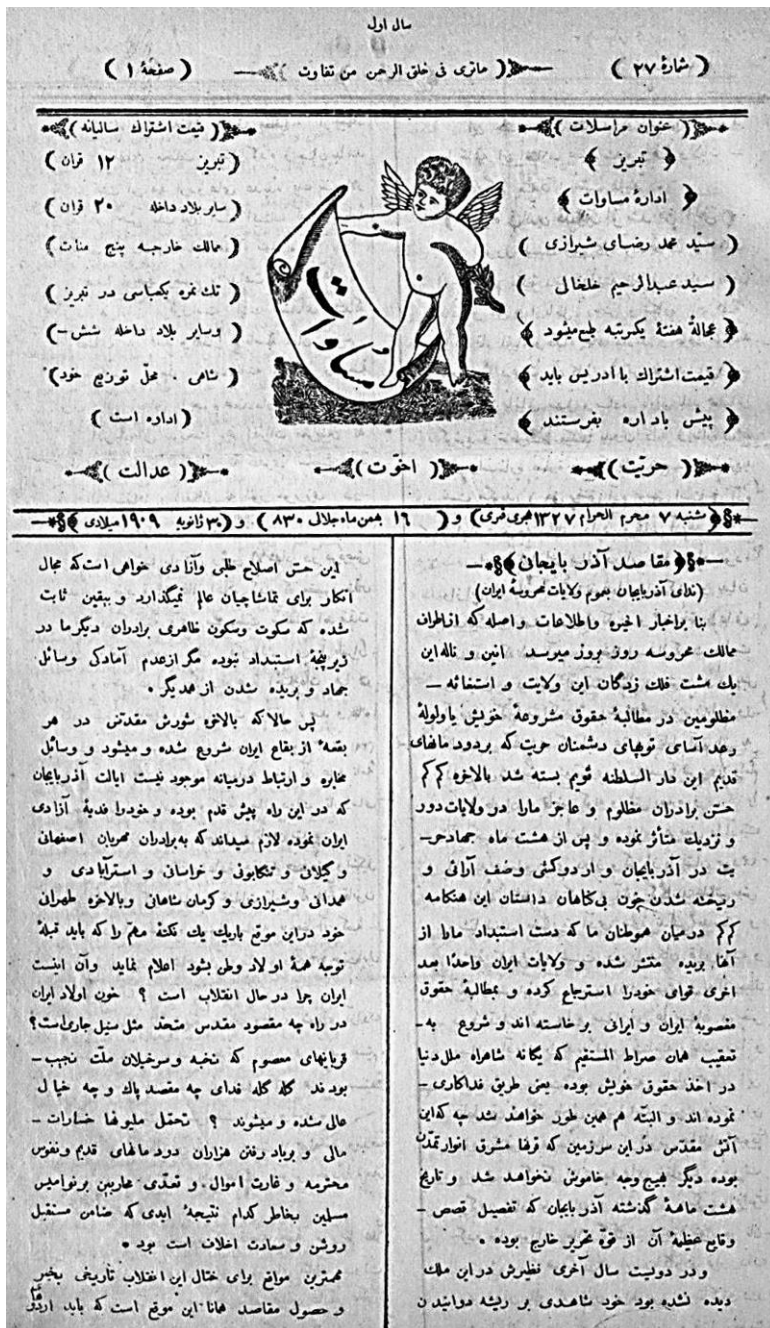 سال اول
( شمارهٔ ۲۷ )
( ماتری فی خلق الرحمن من تفاوت )
( صفحهٔ ۱ )
( عنوان مراسلات )
( تبریز )
( ادارهٔ مساوات )
( سید محمد رضای شیرازی )
( سید عبدالرحیم خلخالی )
( عجالةً هفتهٔ یکمرتبه طبع میشود )
( قیمت اشتراك با ادریس باید )
( پیش باداره بفرستند )
مساوات
( قیمت اشتراك سالیانه )
( تبریز ۱۲ قران )
( سایر بلاد داخله ۲۰ قران )
( ممالك خارجه پنج منات )
( تك نمره یکعباسی در تبریز )
( وسایر بلاد داخله شش -)
( شاهی . محلّ توزیع خود )
( اداره است )
( حریّت )
( اخوّت )
( عدالت )
( شنبه ۷ محرم الحرام ۱۳۲۷ هجری قمری ) و ( ۱۶ بهمن ماه جلالی ۸۳۰ ) و ( ۳۰ ژانویه ۱۹۰۹ میلادی )
( مقاصد آذربایجانی )
(ندای آذربایجان بعموم ولایات محروسهٔ ایران)
بنا براخبار اخیره واطلاعات واصله که ازاطراف
ممالك محروسه روز بروز میرسد انین و ناله این
یك مشت فلك زدگان این ولایت و استغاثه -
مظلومین در مطالبهٔ حقوق مشروعهٔ خویش باولولهٔ
رعد آسای توپهای دشمنان حریت که بردودمانهای
قدیم این دار السلطنه قویم بسته شد بالاخره کم کم
حسّ برادران مظلوم و عاجز مارا در ولایات دور
و نزدیك متأثر نموده و پس از هشت ماه جهاد حر-
یت در آذربایجان و اردوکشی وصف آرائی و
ریخته شدن خون بی‌گناهان داستان این هنگامه
کم کم درمیان هموطنان ما که دست استبداد مارا از
آنها بریده منتشر شده و ولایات ایران واحداً بعد
اخری قوای خودرا استرجاع کرده و بمطالبهٔ حقوق
مغصوبهٔ ایران و ایرانی برخاسته اند و شروع به-
تعقیب همان صراط المستقیم که یگانه شاهراه ملل دنیا
در اخذ حقوق خویش بوده یعنی طریق فداکاری -
نموده اند و البته هم همین طور خواهند شد چه که این
آتش مقدّس در این سرزمین که قرنها مشرق انوار تمدّن
بوده دیگر بهیچ وجه خاموش نخواهد شد و تاریخ
هشت ماههٔ گذشته آذربایجان که تفصیل قصص -
وقایع عظیمهٔ آن از قوّهٔ تحریر خارج بوده .
ودر دویست سال آخری نظیرش در این ملك
دیده نشده بود خود شاهدی بر ریشه دوانیدن
این حسّ اصلاح طلبی وآزادی خواهی است که مجال
انکار برای تماشاچیان عالم نمیگذارد و بیقین ثابت
شده که سکوت وسکون ظاهری برادران دیگر ما در
زیر پنجهٔ استبداد نبوده مگر ازعدم آمادگی وسائل
جهاد و بریده شدن از همدیگر .
پس حالا که بالاخره شورش مقدّس در هر
بقعهٔ از بقاع ایران شروع شده و میشود و وسائل
مخابره و ارتباط درمیانه موجود نیست ایالت آذربایجان
که در این راه پیش قدم بوده و خودرا فدیهٔ آزادی
ایران نموده لازم میداند که به برادران مهربان اصفهانی
و گیلانی و تنکابونی و خراسانی و استرآبادی و
همدانی وشیرازی و کرمان شاهانی وبالاخره طهرانی
خود دراین موقع باریك یك نکتهٔ مهمّ را که باید قبلهٔ
توجه همهٔ اولاد وطن بشود اعلام نماید وآن اینست
ایران چرا در حال انقلاب است ؟ خون اولاد ایران
در راه چه مقصود مقدس متحد مثل سیل جاری است؟
قربانیهای معصوم که نخبه و سرخیلان ملّت نجیب -
بودند گله گله فدای چه مقصد پاك و چه خیال
عالی شده و میشوند ؟ تحمّل ملیونها خسارات -
مالی و برباد رفتن هزاران دودمانهای قدیم ونفوس
محترمه و غارت اموال و تعدّی محاربین برنوامیس
مسلمین بخاطر کدام نتیجهٔ ابدی که ضامن مستقبل
روشن و سعادت اخلاف است بود .
مهمترین مواقع برای ختال این انقلاب تاریخی بخیر
و حصول مقاصد همانا این موقع است که باید